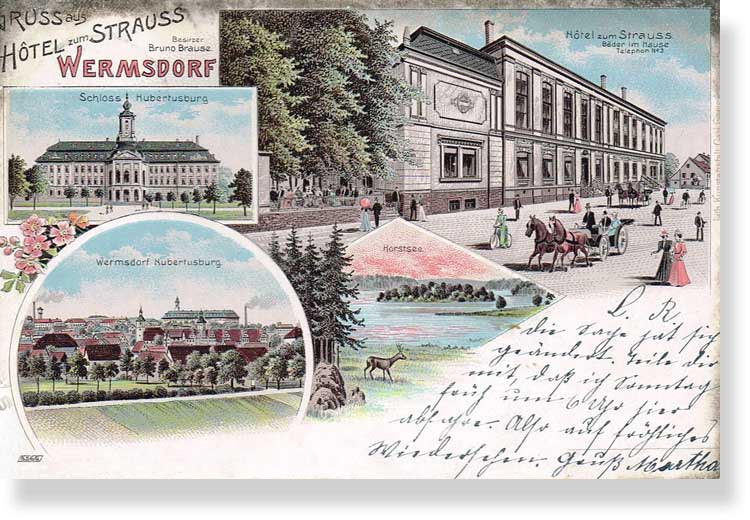 GRUSS aus
HÔTEL zum STRAUSS
Besitzer
Bruno Brause.
WERMSDORF
Schloss Hubertusburg
Hôtel zum Strauss
Bäder im Hause
Telephon No 3
Wermsdorf Hubertusburg
Horstsee.
L. R
die Sage hat sich
geändert. Teile dir
mit, daß ich Sonntag
früh um 6 Uhr hier
abfahre. Also auf fröhliches
Wiedersehen. Gruß Martha